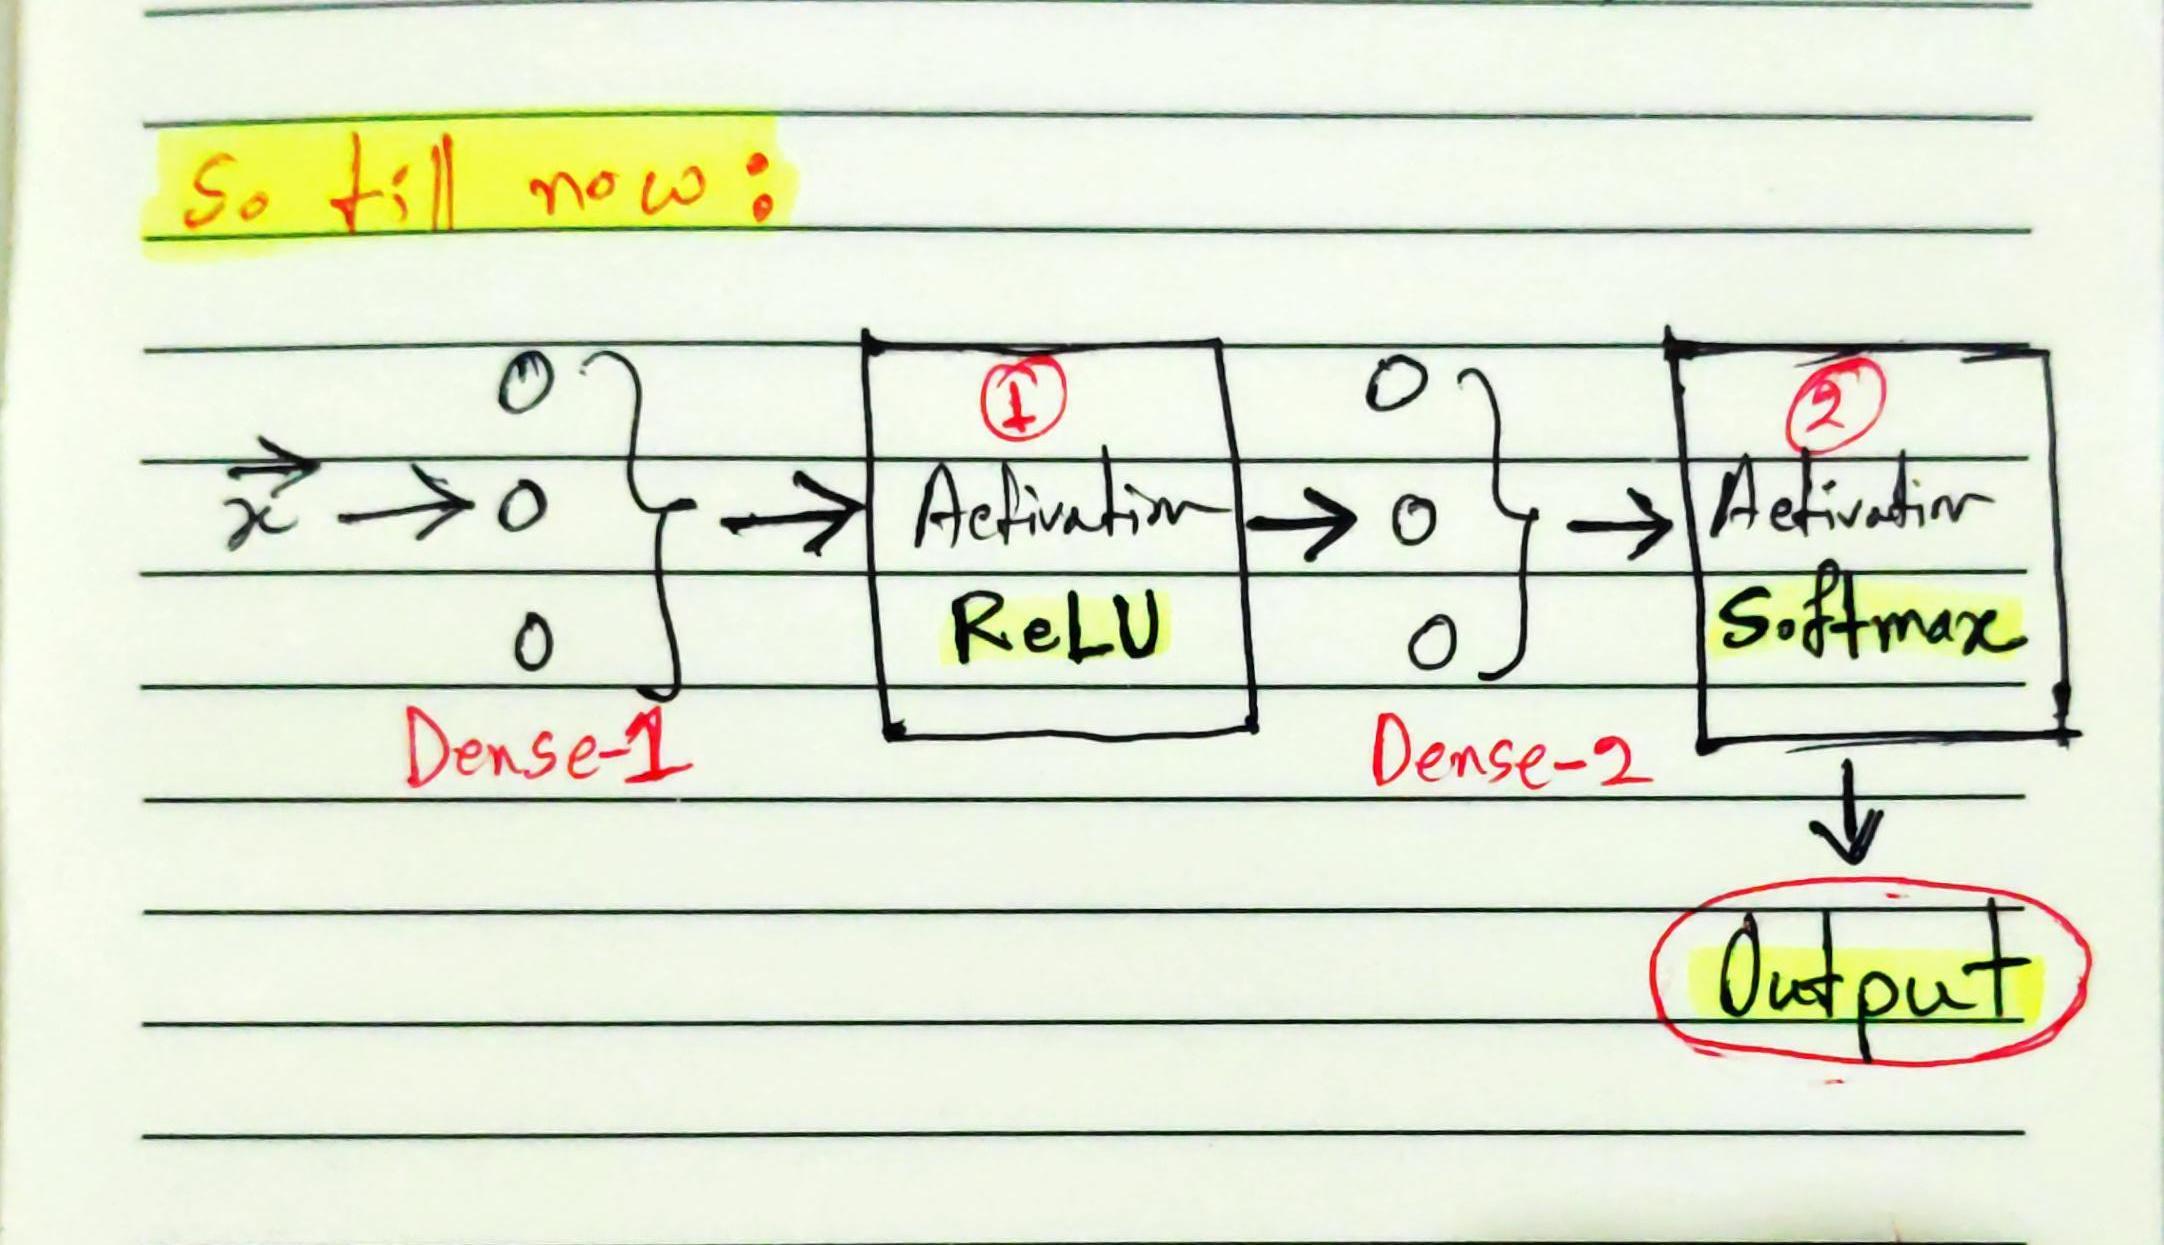 So till now:
x → 0 0 0
Dense-1
① Activation
ReLU
0 0 0
Dense-2
② Activation
Softmax
Output